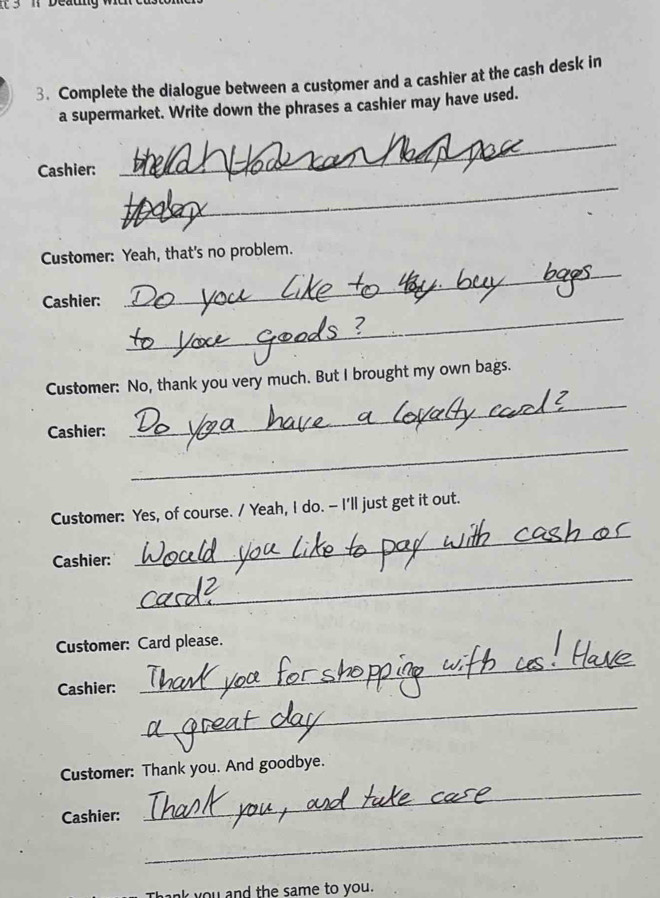 3. Complete the dialogue between a customer and a cashier at the cash desk in
a supermarket. Write down the phrases a cashier may have used.
Cashier: can
today
Customer: Yeah, that's no problem.
Cashier: Do you like to buy bags
to your goods?
Customer: No, thank you very much. But I brought my own bags.
Cashier: Do you have a loyalty card?
Customer: Yes, of course. / Yeah, I do. – I'll just get it out.
Cashier: Would you like to pay with cash or
card?
Customer: Card please.
Cashier: Thank you for shopping with us! Have
a great day
Customer: Thank you. And goodbye.
Cashier: Thank you, and take care
Thank you and the same to you.